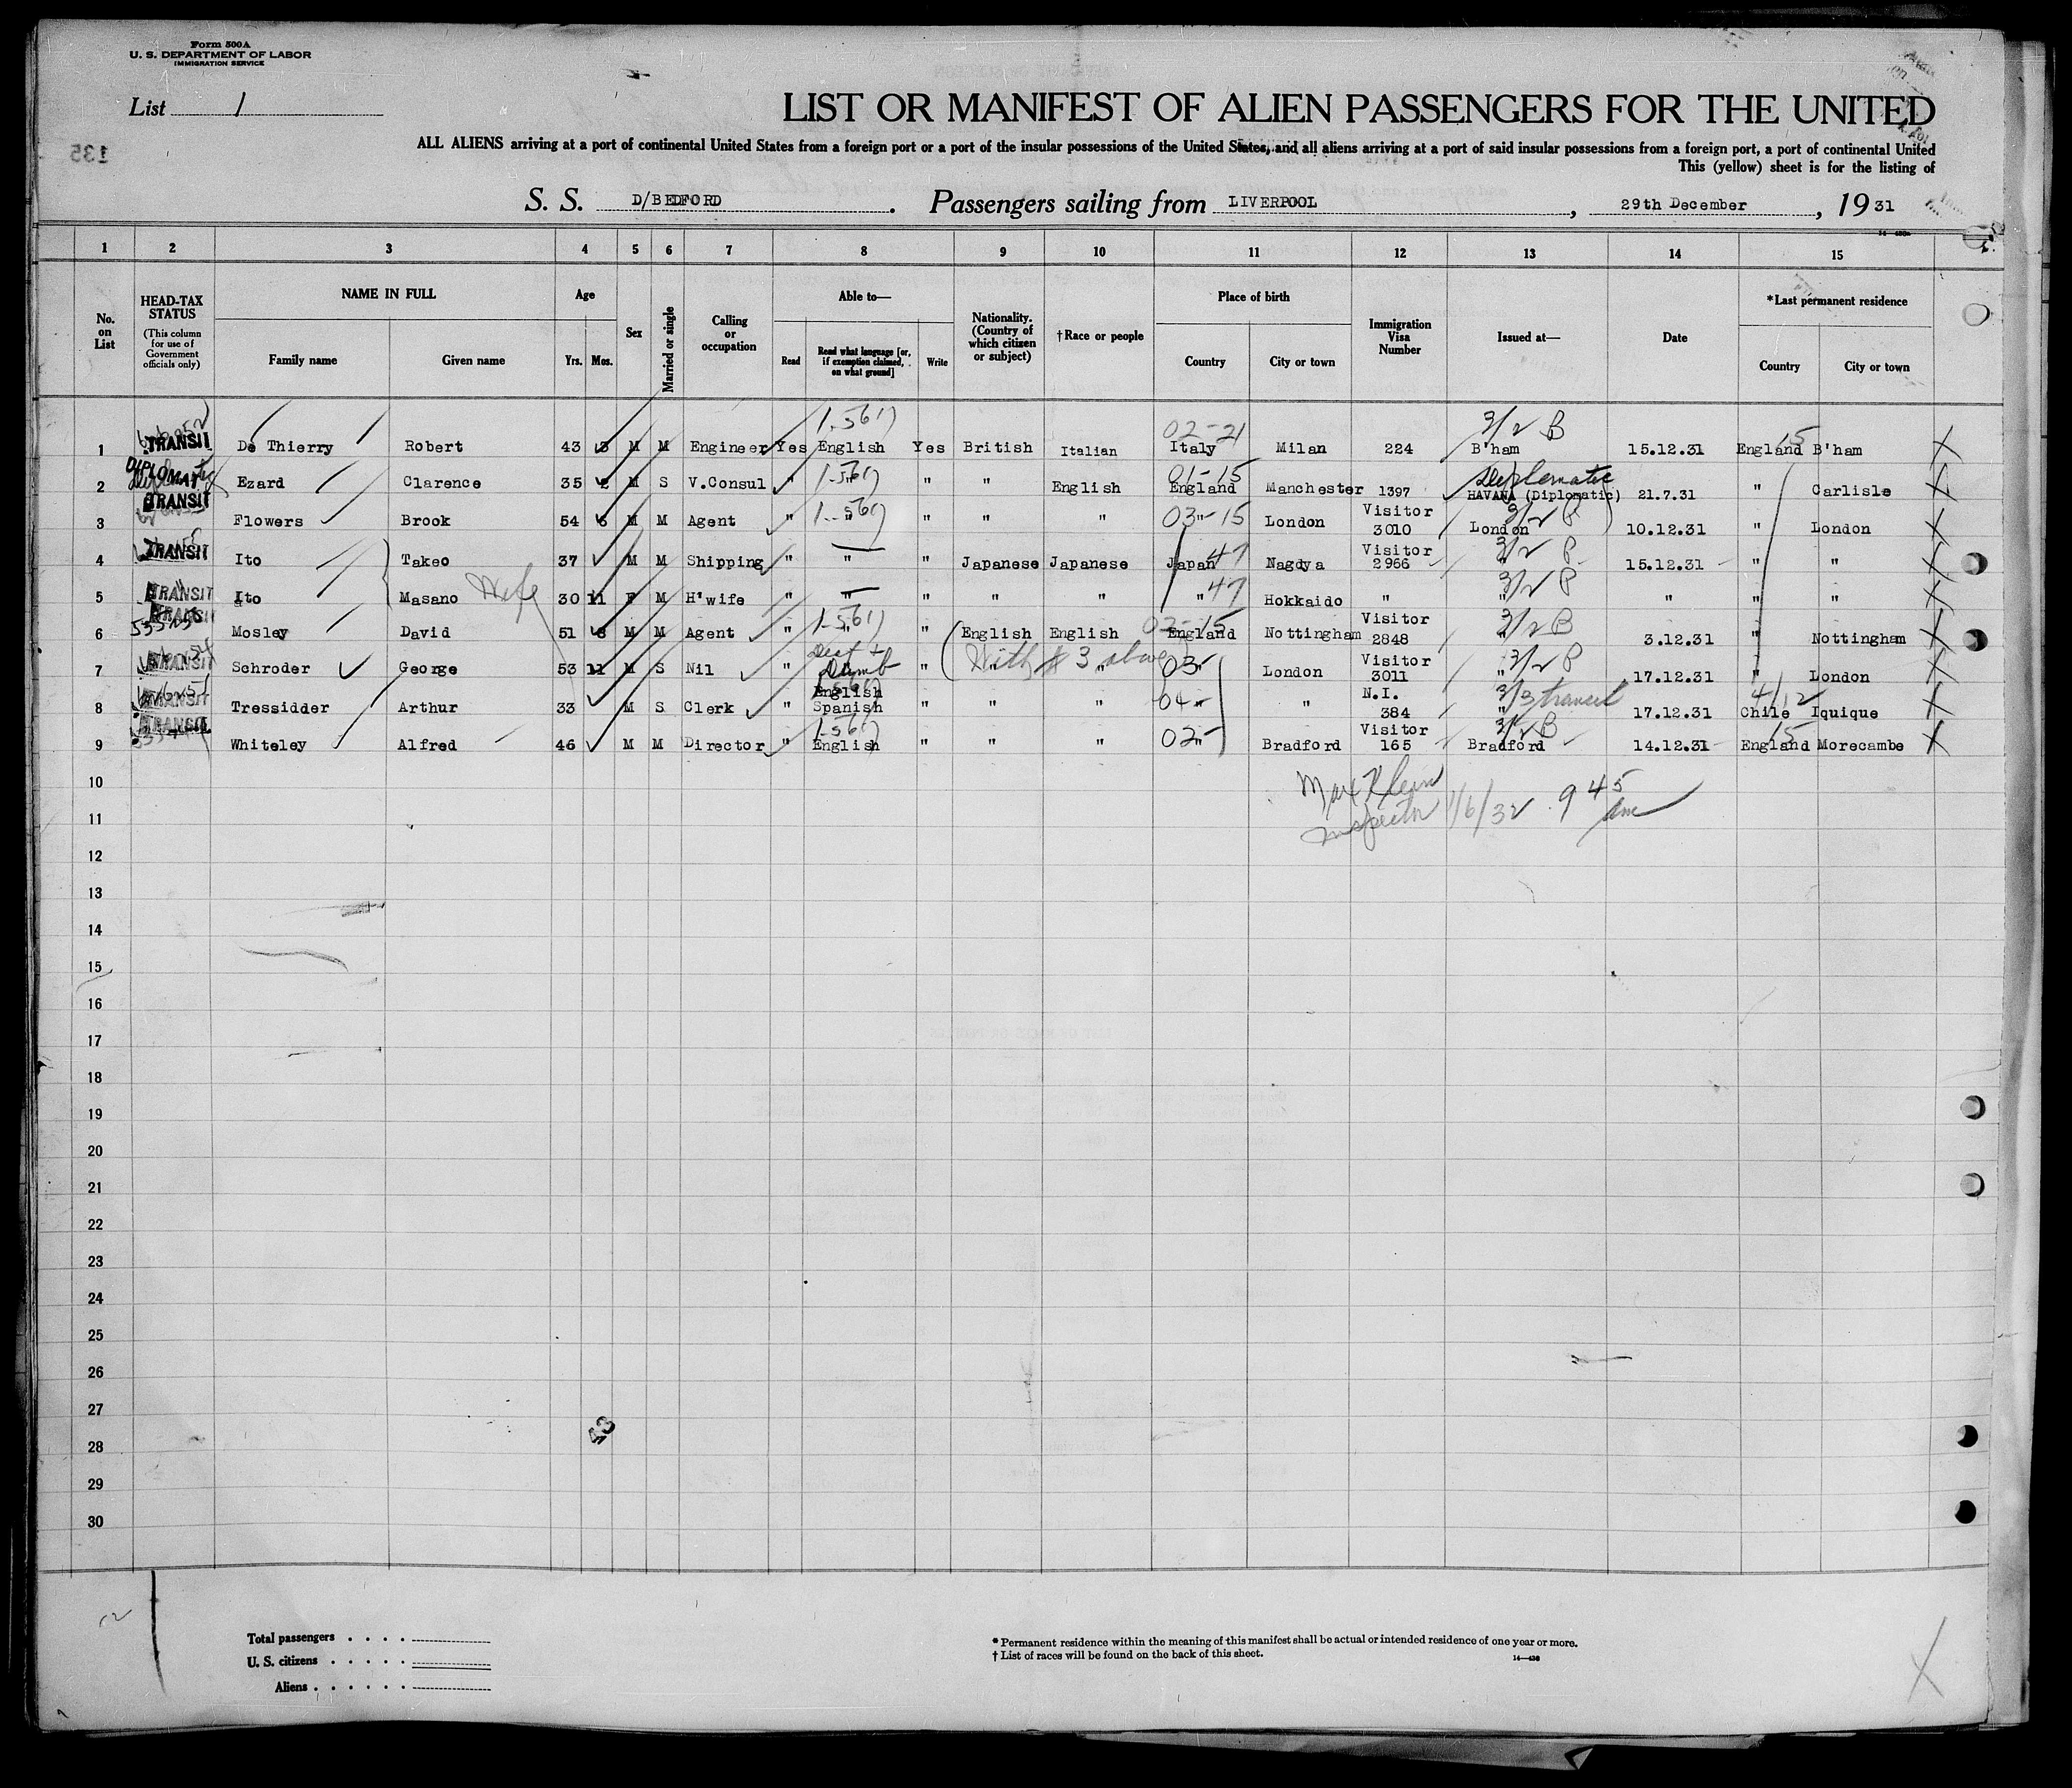 Form 500A
U. S. DEPARTMENT OF LABOR
IMMIGRATION SERVICE
List 1
LIST OR MANIFEST OF ALIEN PASSENGERS FOR THE UNITED
135
ALL ALIENS arriving at a port of continental United States from a foreign port or a port of the insular possessions of the United States, and all aliens arriving at a port of said insular possessions from a foreign port, a port of continental United
This (yellow) sheet is for the listing of
S. S. D/BEDFORD. Passengers sailing from LIVERPOOL, 29th December, 1931
1 2 3 4 5 6 7 8 9 10 11 12 13 14 15
No. on List
HEAD-TAX STATUS
(This column for use of Government officials only)
NAME IN FULL
Family name Given name
Age
Yrs. Mos.
Sex
Married or single
Calling or occupation
Able to—
Read Read what language [or, if exemption claimed, on what ground] Write
Nationality. (Country of which citizen or subject)
†Race or people
Place of birth
Country City or town
Immigration Visa Number
Issued at—
Date
*Last permanent residence
Country City or town
1-561) 02-21 3/2 B 15
1 TRANSIT De Thierry Robert 43 3 M M Engineer Yes English Yes British Italian Italy Milan 224 B'ham 15.12.31 England B'ham X
DIPLOMATIC 1-561) 01-15 Diplomatic
2 Ezard Clarence 35 2 M S V.Consul " " " " English England Manchester 1397 HAVANA (Diplomatic) 21.7.31 " Carlisle X
TRANSIT 1-561) 03-15 Visitor 3/2 P
3 Flowers Brook 54 6 M M Agent " " " " " " London 3010 London 10.12.31 " London X
TRANSIT 47 Visitor 3/2 P
4 Ito Takeo 37 M M Shipping " " " Japanese Japanese Japan Nagdya 2966 " 15.12.31 " " X
TRANSIT Wife 47 3/2 P
5 Ito Masano 30 11 F M H'wife " " " " " " Hokkaido " " " " " X
TRANSIT 1-561) 02-15 Visitor 3/2 B
6 Mosley David 51 8 M M Agent " " " English English England Nottingham 2848 " 3.12.31 " Nottingham X
TRANSIT Deaf + Dumb With # 3 above 03- Visitor 3/2 P
7 Schroder George 53 11 M S Nil " " " " " London 3011 " 17.12.31 " London X
TRANSIT English 04- N.I. 3/3 transit 4/12
8 Tressidder Arthur 33 M S Clerk " Spanish " " " " " 384 " 17.12.31 Chile Iquique X
TRANSIT 1-561) 02- Visitor 3/2 B 15
9 Whiteley Alfred 46 M M Director " English " " " " Bradford 165 Bradford 14.12.31 England Morecambe X
10
Max Klein
Inspector 1/6/32 9 45 am
11
12
13
14
15
16
17
18
19
20
21
22
23
24
25
26
27
28
29
30
Total passengers
U. S. citizens
Aliens
* Permanent residence within the meaning of this manifest shall be actual or intended residence of one year or more.
† List of races will be found on the back of this sheet.
14—430
X